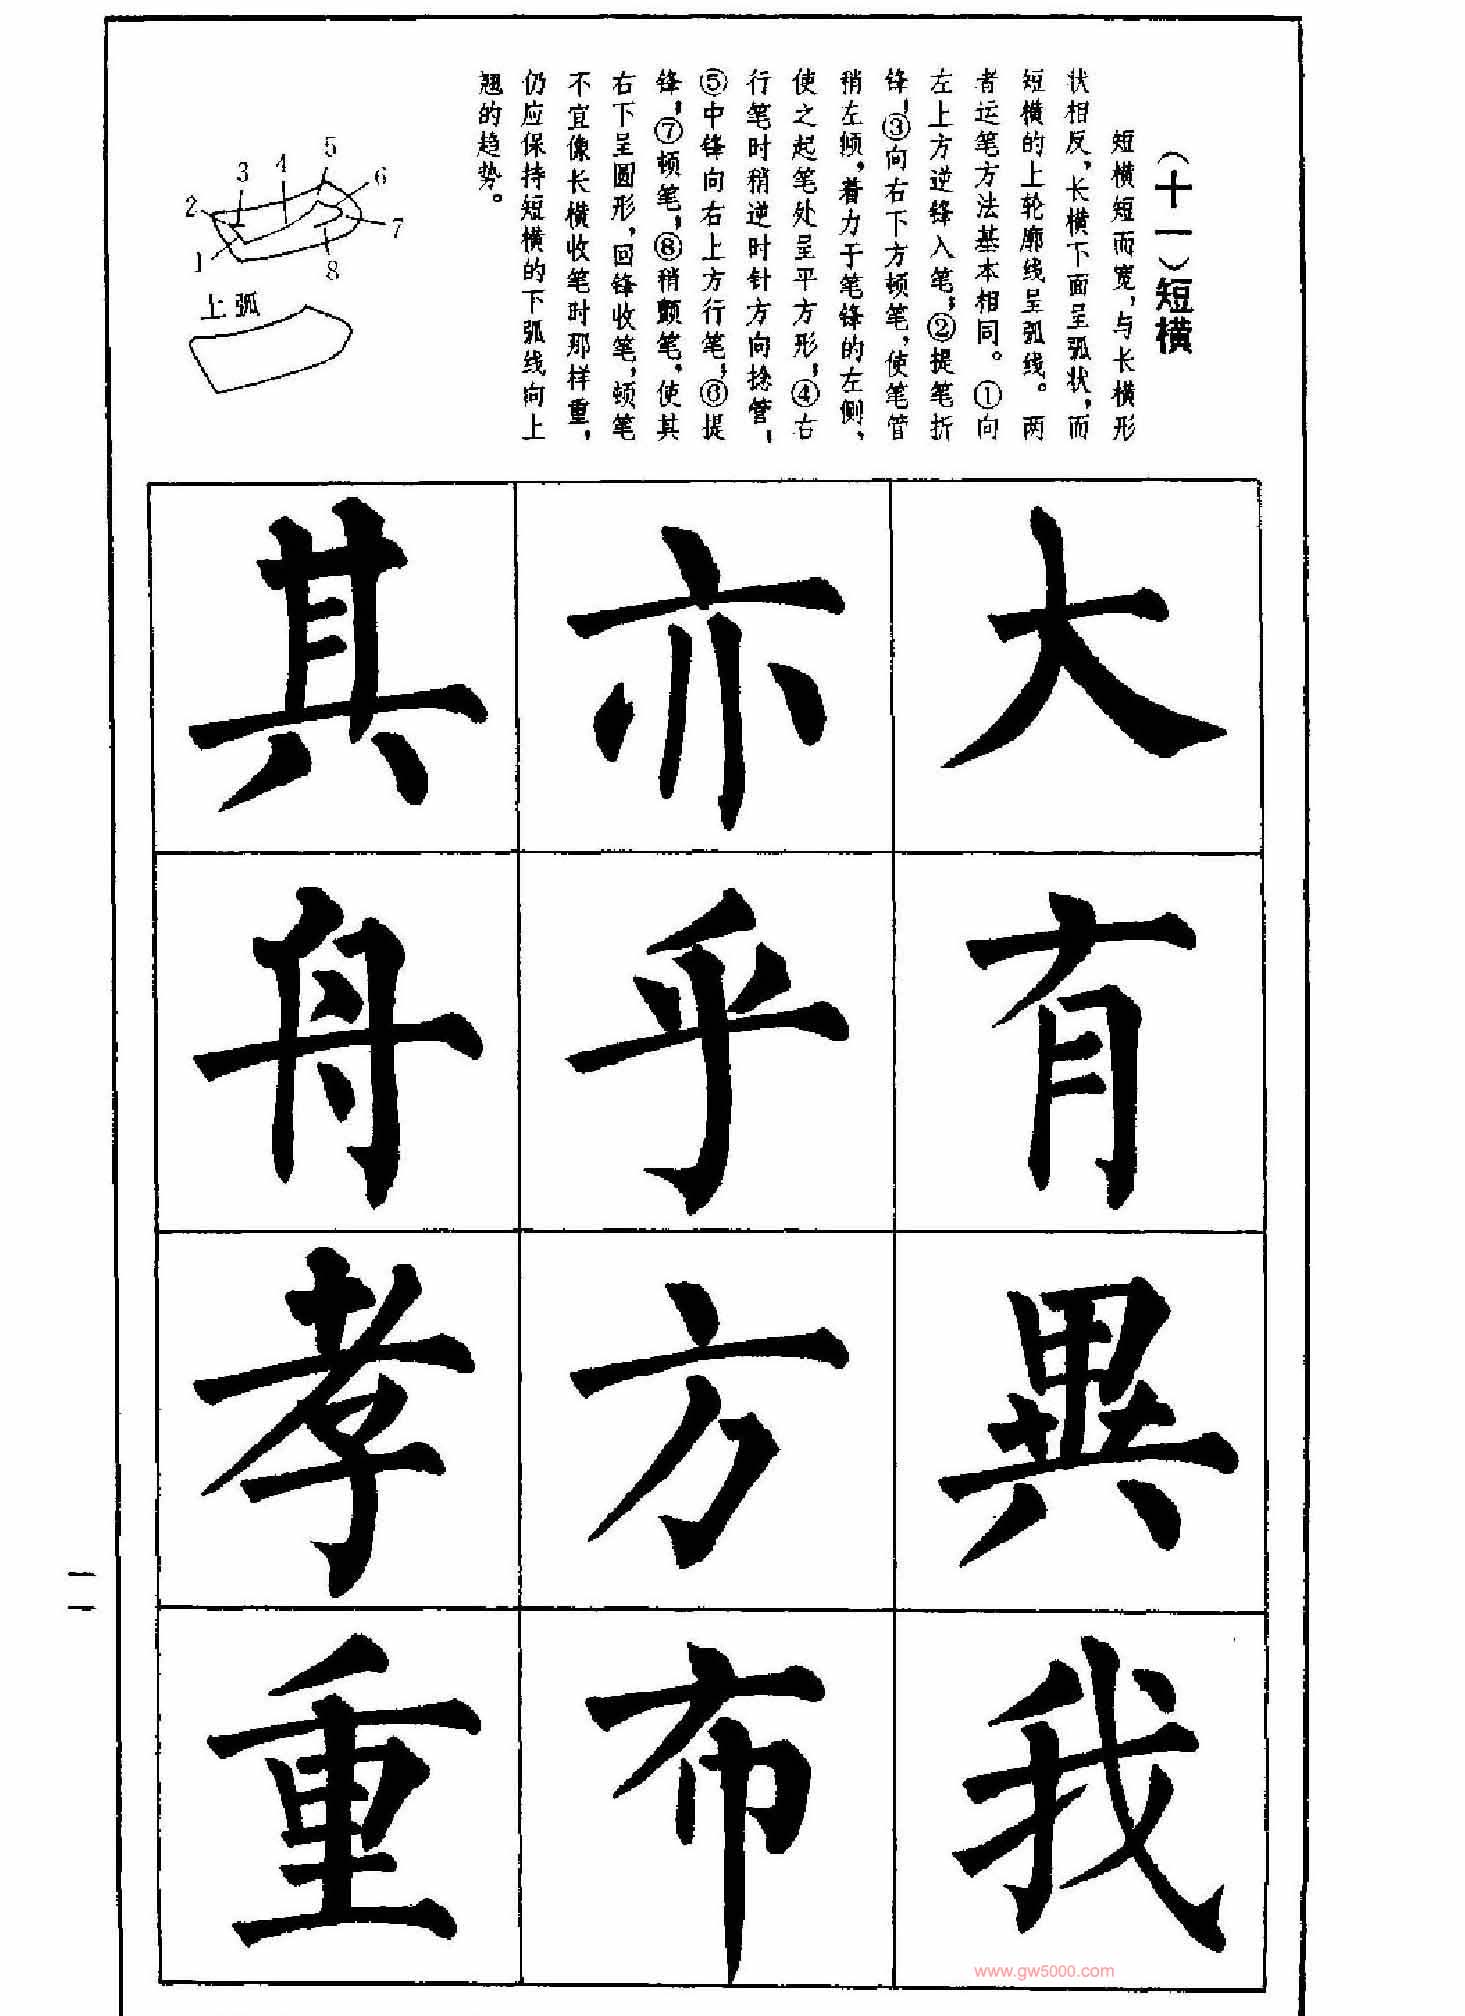 （十一）短横
短横短而宽，与长横形
状相反，长横下面呈弧状，而
短横的上轮廓线呈弧线。两
者运笔方法基本相同。①向
左上方逆锋入笔；②提笔折
锋；③向右下方顿笔，使笔管
稍左倾，着力于笔锋的左侧，
使之起笔处呈平方形；④右
行笔时稍逆时针方向捻管，
⑤中锋向右上方行笔；⑥提
锋；⑦顿笔；⑧稍颤笔，使其
右下呈圆形，回锋收笔，顿笔
不宜像长横收笔时那样重，
仍应保持短横的下弧线向上
翘的趋势。
1
2
3
4
5
6
7
8
上弧
大
有
異
我
亦
乎
方
布
其
舟
孝
重
一一
www.gw5000.com